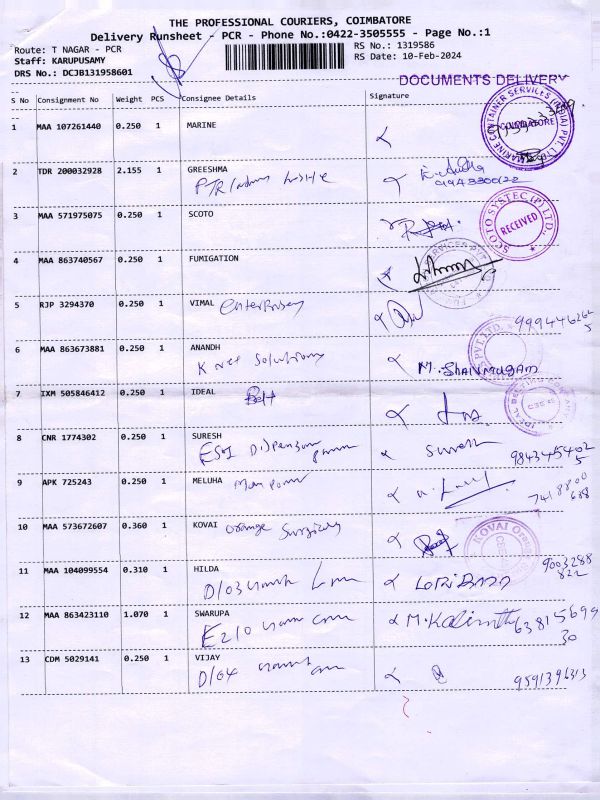 THE PROFESSIONAL COURIERS, COIMBATORE
Delivery Runsheet - PCR - Phone No.:0422-3505555 - Page No.:1
Route: T NAGAR - PCR
RS No.: 1319586
Staff: KARUPUSAMY
RS Date: 10-Feb-2024
DRS No.: DCJB131958601
DOCUMENTS DELIVERY
S No Consignment No Weight PCS Consignee Details Signature
1 MAA 107261440 0.250 1 MARINE
MARINE CONTAINER SERVICES (INDIA) PVT. LTD.
COIMBATORE
2 TDR 200032928 2.155 1 GREESHMA
3 MAA 571975075 0.250 1 SCOTO
SCOTO SYSTEC (P) LTD.
RECEIVED
4 MAA 863740567 0.250 1 FUMIGATION
5 RJP 3294370 0.250 1 VIMAL
enterprises
6 MAA 863673881 0.250 1 ANANDH
K Net Solutions
M. SHANMUGAM
7 IXM 505846412 0.250 1 IDEAL
Belt
8 CNR 1774302 0.250 1 SURESH
ESI Dispensary
Suresh
9843454025
9 APK 725243 0.250 1 MELUHA
Man power
7418800
10 MAA 573672607 0.360 1 KOVAI
orange
KOVAI
11 MAA 104099554 0.310 1 HILDA
D/03
9003288
822
12 MAA 863423110 1.070 1 SWARUPA
E210
M.
63815699
30
13 CDM 5029141 0.250 1 VIJAY
D/04
9591396313